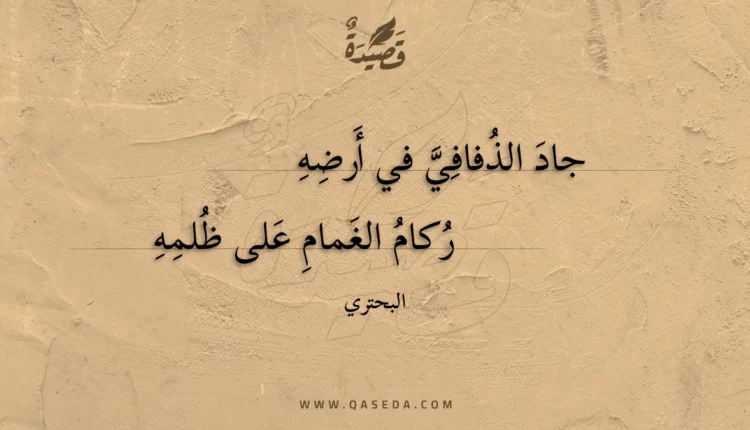 قَصِيدَةٌ
جادَ الذُفافِيَّ في أَرضِهِ
رُكامُ الغَمامِ عَلى ظُلمِهِ
البحتري
WWW.QASEDA.COM